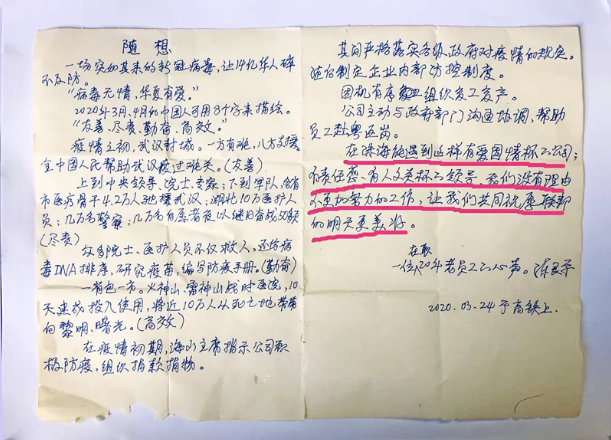 随 想
一场突如其来的新冠病毒，让14亿华人猝
不及防。
"病毒无情，华夏有爱。"
2020年3月、4月的中国人可用8个字来描绘。
"友善、尽责、勤奋、高效。"
疫情之初，武汉封城。一方有难，八方支援
全中国人民帮助武汉度过难关。（友善）
上到中央领导、院士、专家；下到军队、各省
市医疗骨干4.2万人驰援武汉；湖北10万医护人
员；几万名警察；几万名
（尽责）
众多院士、医护人员不仅救人，还给病
毒DNA排序，研究疫苗，编写防疫手册。（勤奋）
一省包一市。火神山、雷神山战时医院，10
天建成投入使用，将近10万人从死亡地带带
向黎明、曙光。（高效）
在疫情初期，海山主席指示公司积
极防疫，组织捐款捐物。
其间严格落实各级政府对疫情的规定。
适时制定企业内部防控制度。
因机有序 组织复工复产。
公司主动与政府部门沟通协调，帮助
员工赴粤返岗。
在深海能遇到这样有爱国情怀的公司；
有责任感、有人文关怀的领导，我们没有理由
不更加努力的工作，让我们共同祝愿
的明天更美好。
在职
一位20年老员工的心声。
2020.03.24于高铁上.